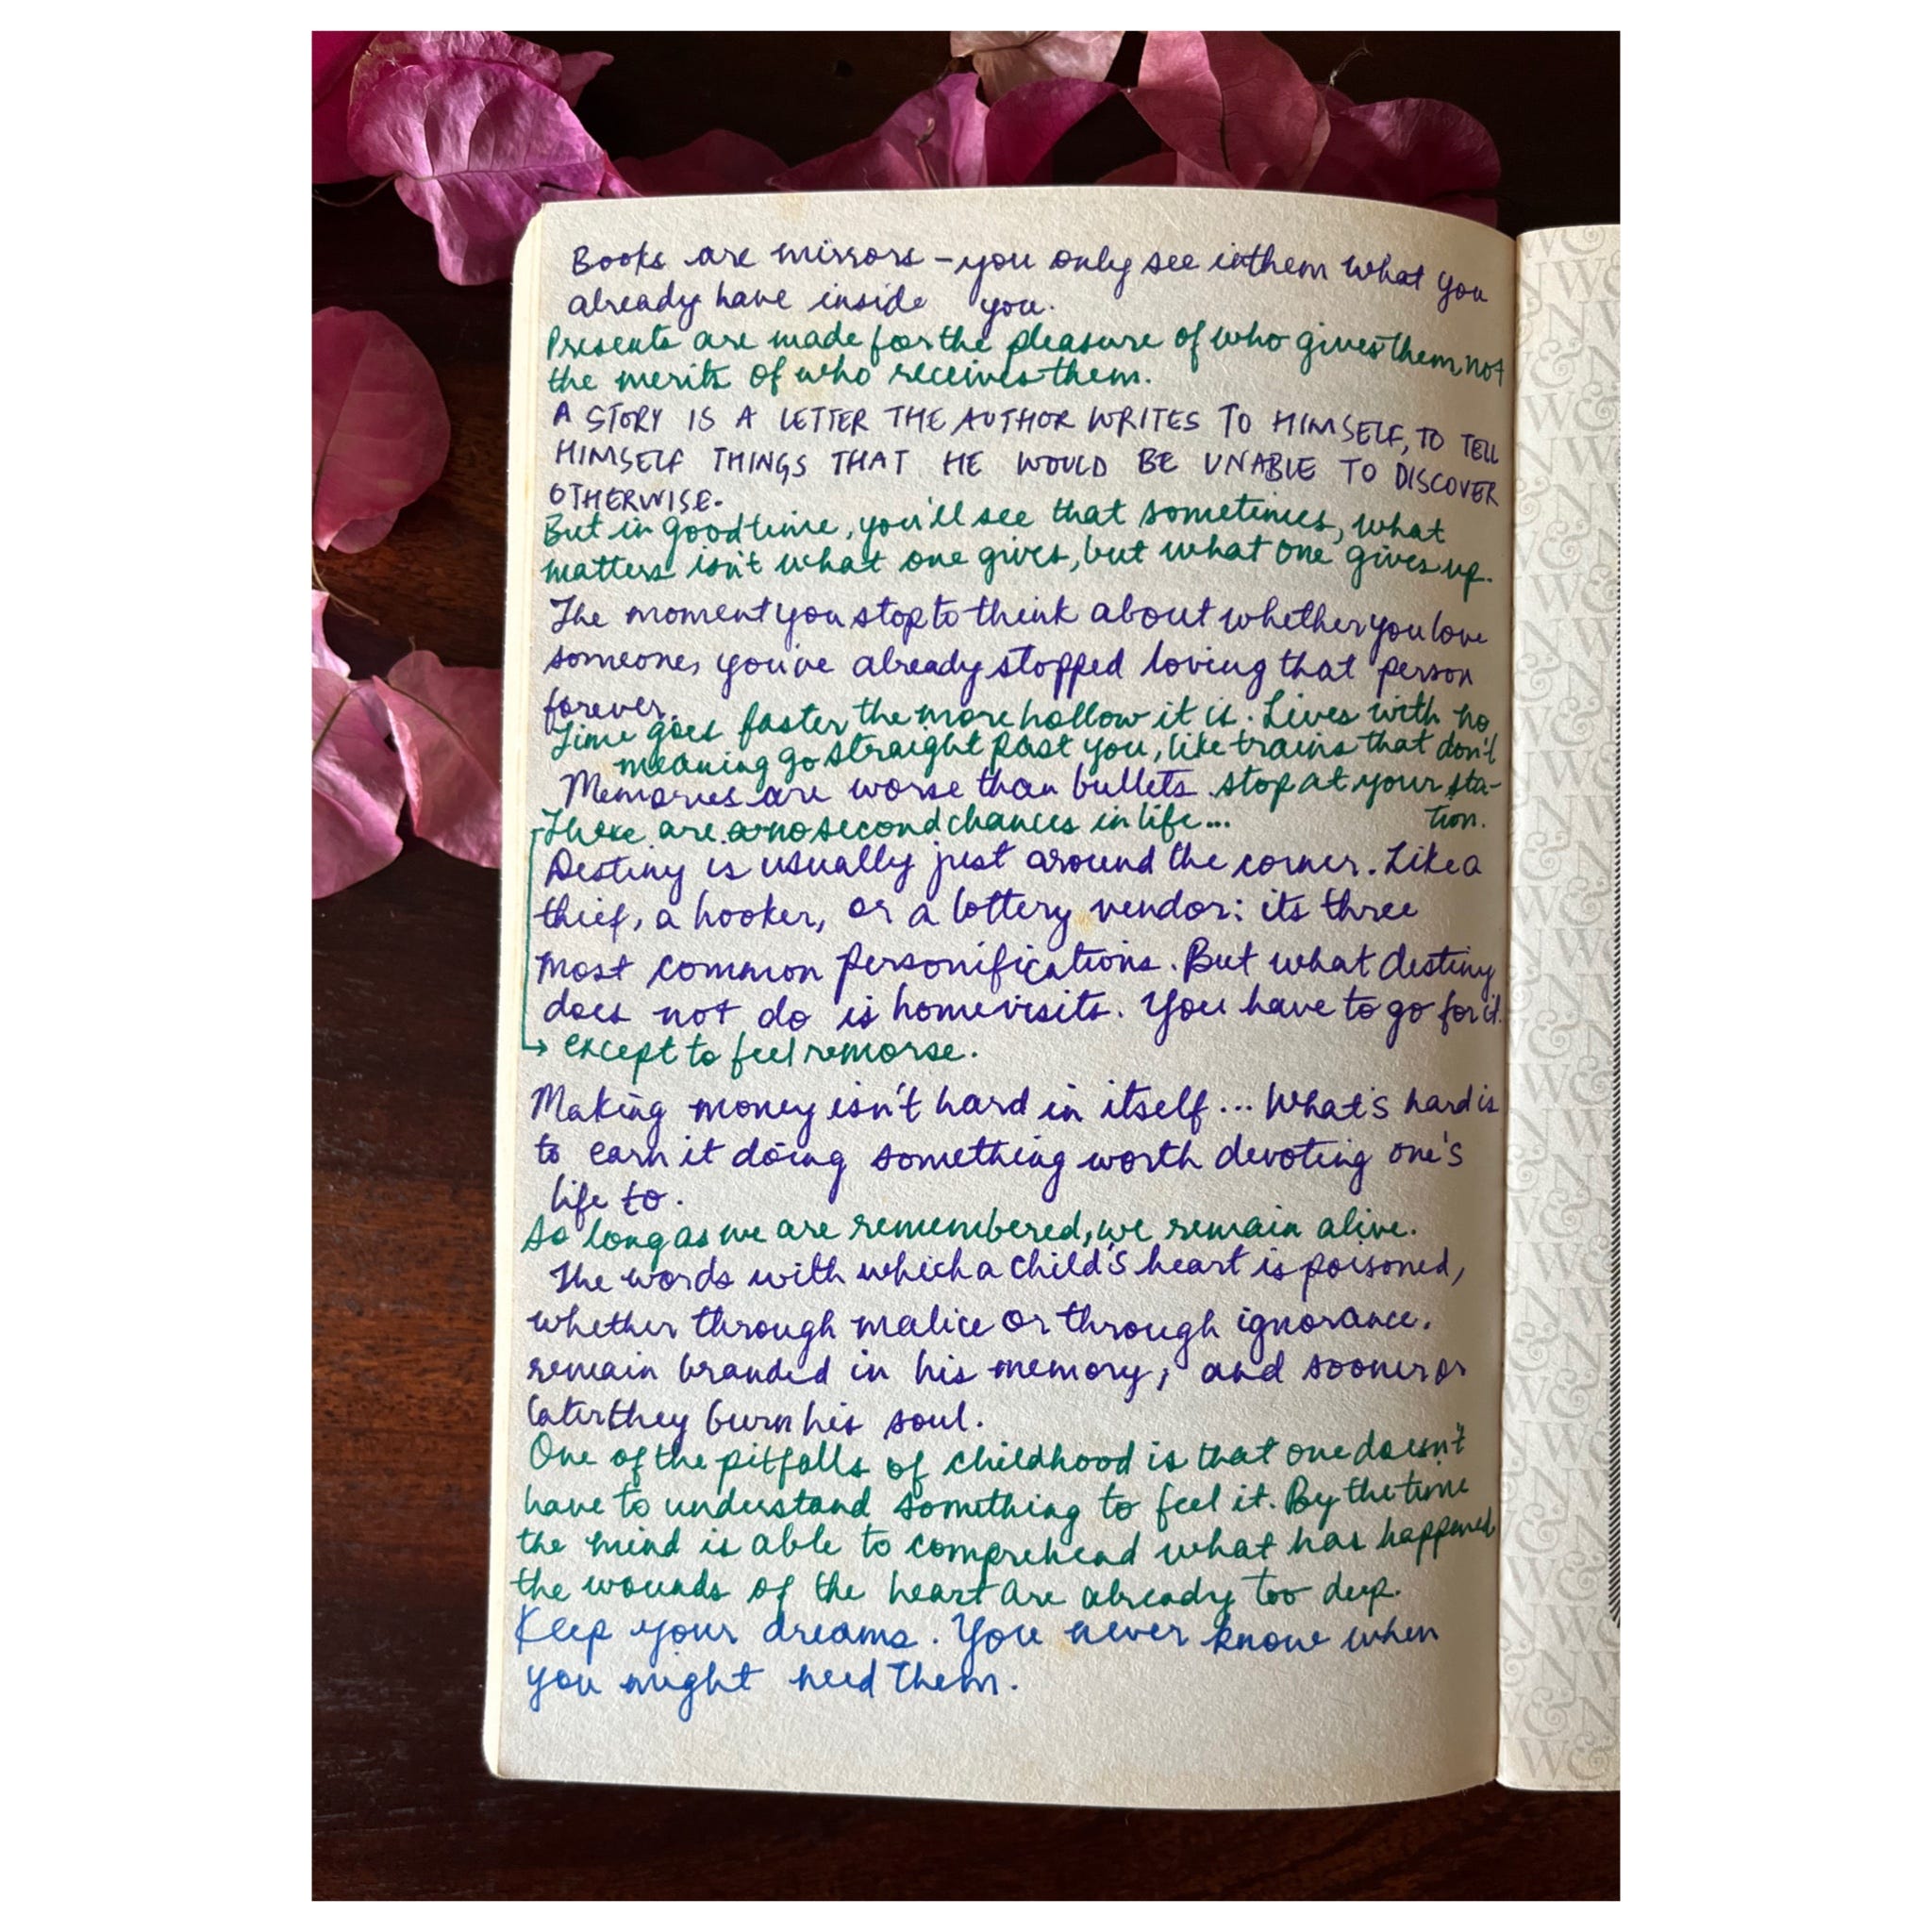 Books are mirrors – you only see in them what you
already have inside you.
Presents are made for the pleasure of who gives them, not
the merits of who receives them.
A STORY IS A LETTER THE AUTHOR WRITES TO HIMSELF, TO TELL
HIMSELF THINGS THAT HE WOULD BE UNABLE TO DISCOVER
OTHERWISE.
But in good time, you'll see that sometimes, what
matters isn't what one gives, but what one gives up.
The moment you stop to think about whether you love
someone, you've already stopped loving that person
forever.
Time goes faster the more hollow it is. Lives with no
meaning go straight past you, like trains that don't
stop at your sta-
tion.
Memories are worse than bullets.
There are no second chances in life...
except to feel remorse.
Destiny is usually just around the corner. Like a
thief, a hooker, or a lottery vendor: its three
most common personifications. But what destiny
does not do is home visits. You have to go for it.
Making money isn't hard in itself... What's hard is
to earn it doing something worth devoting one's
life to.
So long as we are remembered, we remain alive.
The words with which a child's heart is poisoned,
whether through malice or through ignorance,
remain branded in his memory, and sooner or
later they burn his soul.
One of the pitfalls of childhood is that one doesn't
have to understand something to feel it. By the time
the mind is able to comprehend what has happened
the wounds of the heart are already too deep.
Keep your dreams. You never know when
you might need them.
W&N